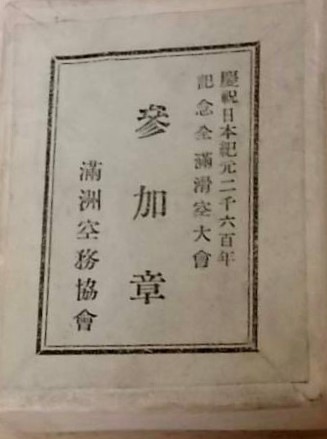 慶祝日本紀元二千六百年
記念全滿滑空大會
參加章
滿洲空務協會